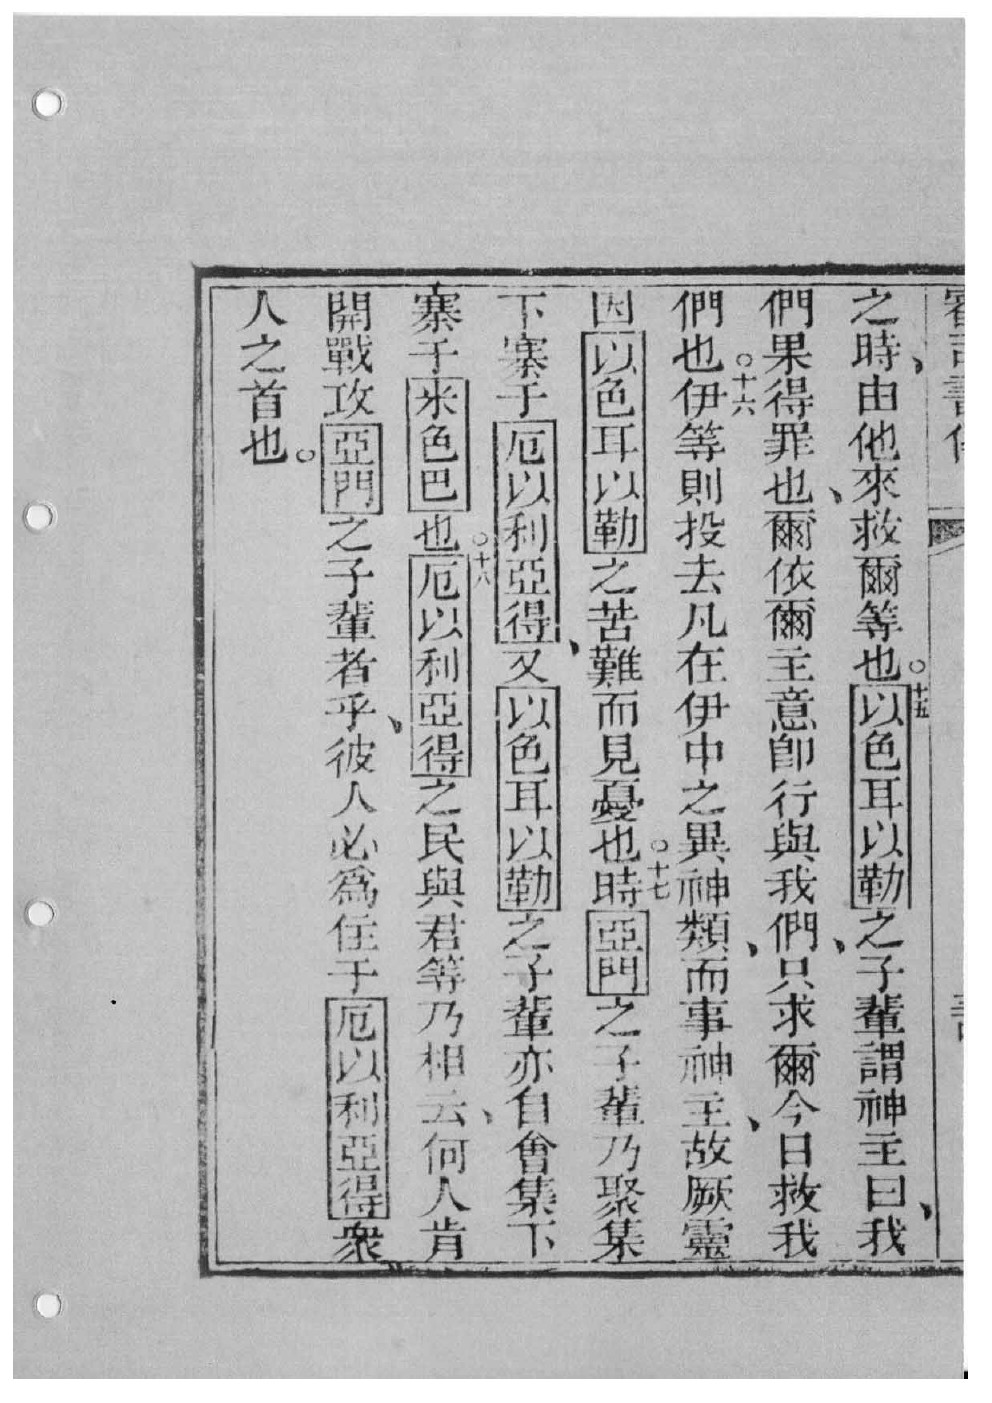 審司書傳
之時、由他來救爾等也。○十五以色耳以勒之子輩謂神主曰、我
們果得罪也、爾依爾主意卽行與我們、只求爾今日救我
們也○十六伊等則投去凡在伊中之異神類、而事神主、故厥靈
因以色耳以勒之苦難而見憂也○十七時亞門之子輩乃聚集
下寨于厄以利亞得、又以色耳以勒之子輩亦自會集下
寨于米色巴也○十八厄以利亞得之民與君等乃相云、何人肯
開戰攻亞門之子輩者乎、彼人必爲住于厄以利亞得衆
人之首也。